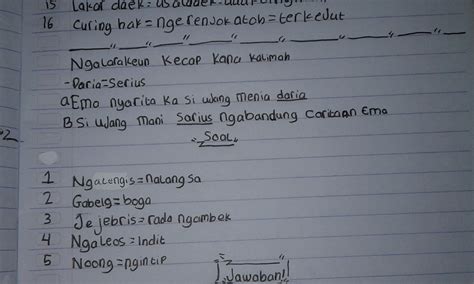 15 Lakar daek =
16 Curing bak = ngerenjok atoh = terkejut
Ngalarakeun Kecap Kana Kalimah
- Daria = Serius
a. Ema nyarita Ka Si ujang menia daria
B Si ujang mani Sarius ngabandung Caritaan Ema
Soal
1 Ngalengis = nalangsa
2 Gabelg = boga
3 Jejebris = rada ngambek
4 Ngaleos = Indit
5 Noong = ngintip
Jawaban!